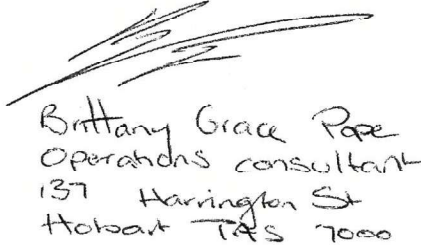 Brittany Grace Pope
Operations consultant
137 Harrington St
Hobart TAS 7000